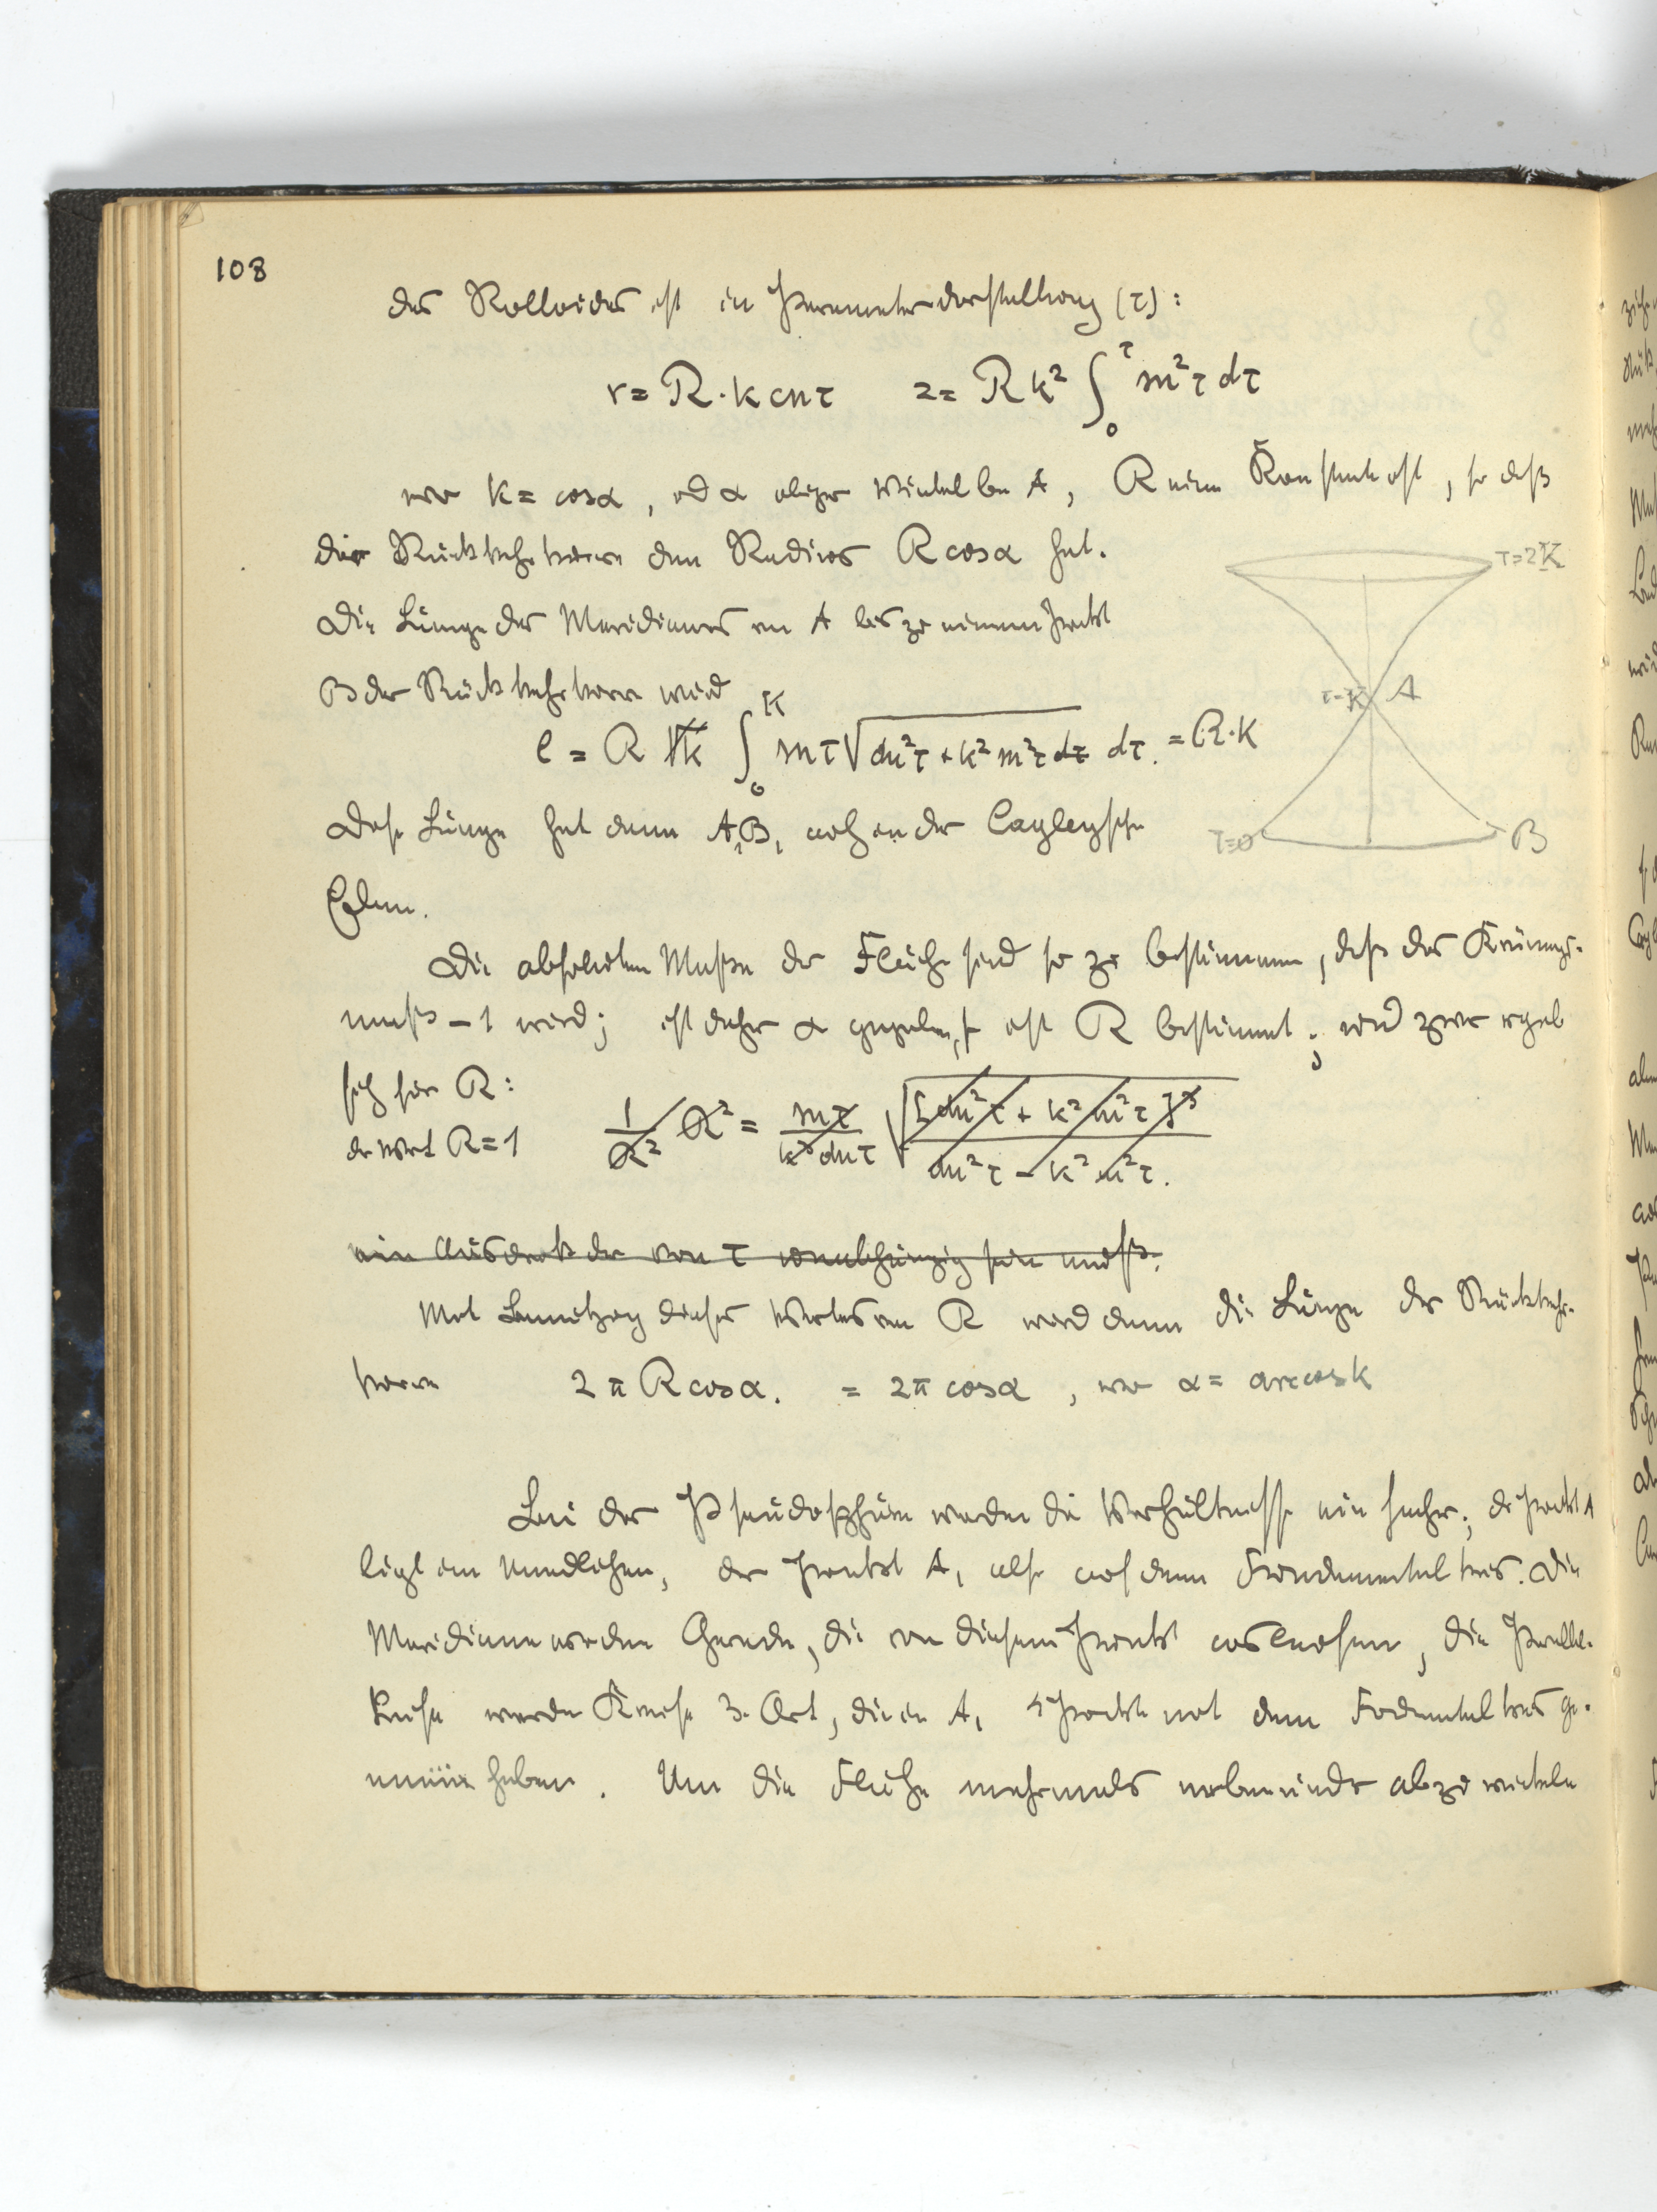 108
des Rolloides ist in Parameterdarstellung (τ):
r = R·k cn τ   z = R k² ∫₀^τ sn²τ dτ
wo k = cosα, und α obiger Winkel bei A, R eine Konstante ist, so daß
die Rückkehrkurve den Radius R cosα hat.
τ=2K
Die Länge des Meridianes von A bis zu einem Punkt
B der Rückkehrkurve wird
τ=K A
l = R k ∫₀^K sn τ √dn²τ + k² sn²τ dτ dτ. = R·K
Diese Länge hat dann A₁B₁ auch in der Cayleyschen
τ=0 B
Ebene.
Die absoluten Maße der Fläche sind so zu bestimmen, daß das Krümungs-
maß -1 wird; ist daher α gegeben, so ist R bestimmt; und zwar ergibt
sich für R:
der Wert R = 1
1/R² R² = sn τ/k³ dn τ √[dn²τ + k² sn²τ]³/dn²τ - k² sn²τ.
ein Ausdruck der von τ unabhängig sein muß.
Mit Benützung dieses Wertes von R wird dann die Länge der Rückkehr-
kurve 2π R cosα. = 2π cosα, wo α = arccos k
Bei der Pseudosphäre werden die Verhältnisse einfacher; der Punkt A
liegt im Unendlichen, der Punkt A₁ also auf dem Fundamentalkreis. Die
Meridiane werden Gerade, die von diesem Punkt auslaufen, die Parallel-
kreise werden Kreise 3. Art, die in A₁ 4 Punkte mit dem Fundamentalkreis ge-
mein haben. Um die Fläche mehrmals nebeneinander abzuwickeln